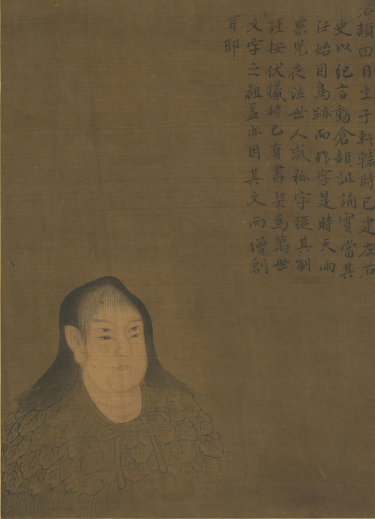 倉頡四目生于軒轅時已建左右
史以紀言動倉頡詛誦實當其
任始因鳥跡而作字是時天雨
粟鬼夜泣世人咸稱字從其制
謹按伏犧時已有書契為萬世
文字之祖蓋亦因其文而增創
耶